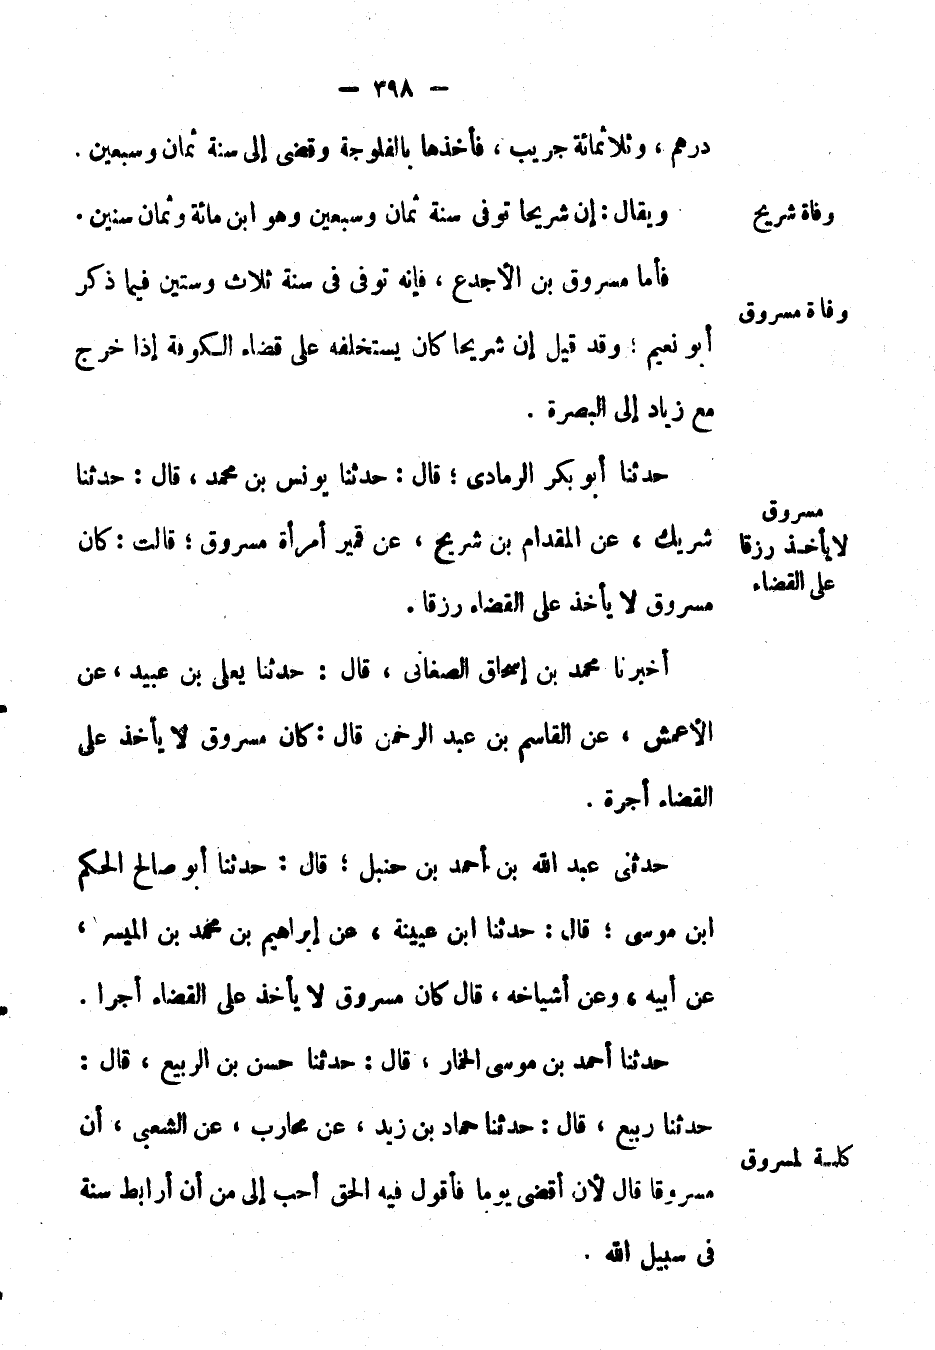 — ٣٩٨ —
درهم ، وثلاثمائة جريب ، فأخذها بالفلوجة وقضى إلى سنة ثمان وسبعين .
وفاة شريح
ويقال : إن شريحا توفى سنة ثمان وسبعين وهو ابن مائة وثمان سنين .
فأما مسروق بن الأجدع ، فإنه توفى فى سنة ثلاث وستين فيما ذكر
وفاة مسروق
أبو نعيم ؛ وقد قيل إن شريحا كان يستخلفه على قضاء الكوفة إذا خرج
مع زياد إلى البصرة .
حدثنا أبو بكر الرمادى ؛ قال : حدثنا يونس بن محمد ، قال : حدثنا
مسروق
لا يأخذ رزقا
على القضاء
شريك ، عن المقدام بن شريح ، عن قمير أمرأة مسروق ؛ قالت : كان
مسروق لا يأخذ على القضاء رزقا .
أخبرنا محمد بن إسحاق الصغانى ، قال : حدثنا يعلى بن عبيد ، عن
الأعمش ، عن القاسم بن عبد الرحمن قال : كان مسروق لا يأخذ على
القضاء أجرة .
حدثنى عبد الله بن أحمد بن حنبل ؛ قال : حدثنا أبو صالح الحكم
ابن موسى ؛ قال : حدثنا ابن عيينة ، عن إبراهيم بن محمد بن الميسر ،
عن أبيه ، وعن أشياخه ، قال كان مسروق لا يأخذ على القضاء أجرا .
حدثنا أحمد بن موسى الخمار ، قال : حدثنا حسن بن الربيع ، قال :
حدثنا ربيع ، قال : حدثنا حماد بن زيد ، عن محارب ، عن الشعبى ، أن
كلمة لمسروق
مسروقا قال لأن أقضى يوما فأقول فيه الحق أحب إلى من أن أرابط سنة
فى سبيل الله .